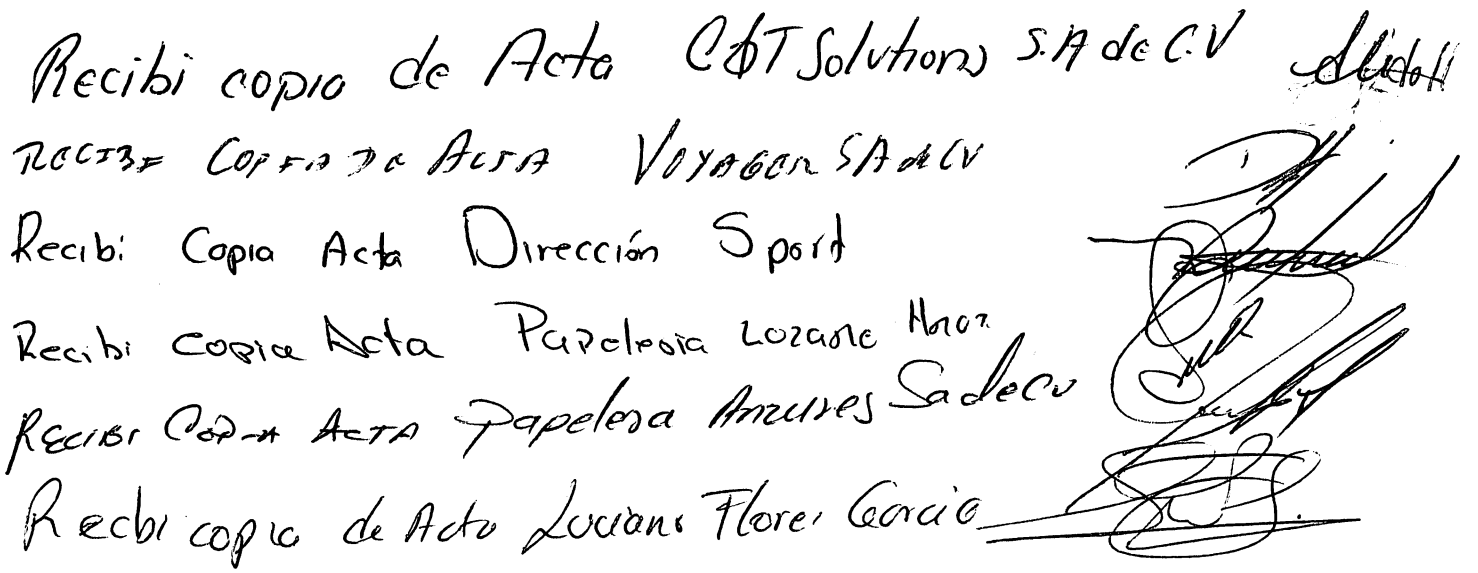 Recibi copia de Acta C&T Solutions S.A de C.V
RECIBE COPIA DE ACTA VOYAGER SA de CV
Recibi Copia Acta Dirección Sport
Recibi copia Acta Papeleria Lozano Hnos
RECIBI COPIA ACTA Papelera Anzures Sa de Cv
Recibi copia de Acta Luciano Flores Garcia